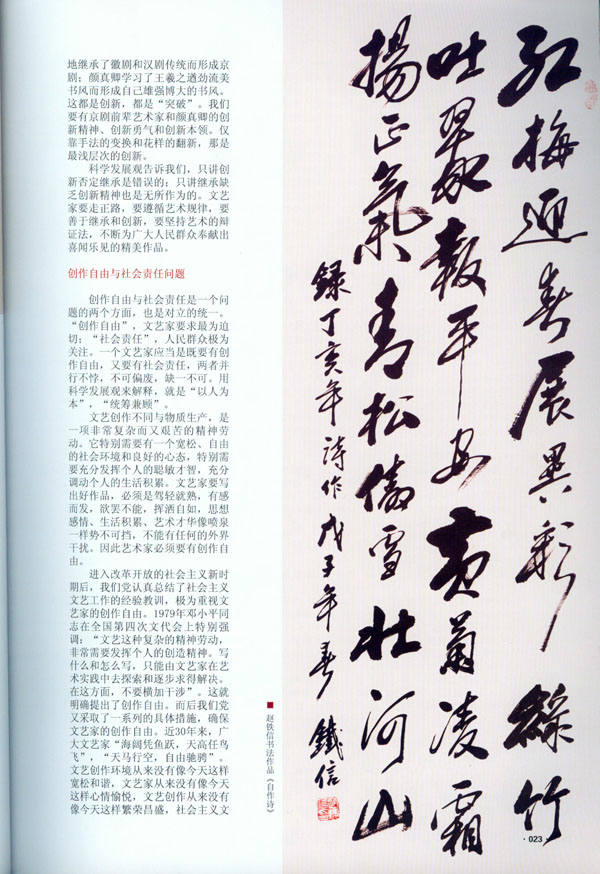 地继承了徽剧和汉剧传统而形成京
剧；颜真卿学习了王羲之遒劲流美
书风而形成自己雄强博大的书风。
这都是创新，都是“突破”。我们
要有京剧前辈艺术家和颜真卿的创
新精神、创新勇气和创新本领。仅
靠手法的变换和花样的翻新，那是
最浅层次的创新。
科学发展观告诉我们，只讲创
新否定继承是错误的；只讲继承缺
乏创新精神也是无所作为的。文艺
家要走正路，要遵循艺术规律，要
善于继承和创新，要坚持艺术的辩
证法，不断为广大人民群众奉献出
喜闻乐见的精美作品。
创作自由与社会责任问题
创作自由与社会责任是一个问
题的两个方面，也是对立的统一。
“创作自由”，文艺家要求最为迫
切；“社会责任”，人民群众极为
关注。一个文艺家应当是既要有创
作自由，又要有社会责任，两者并
行不悖，不可偏废，缺一不可。用
科学发展观来解释，就是“以人为
本”，“统筹兼顾”。
文艺创作不同与物质生产，是
一项非常复杂而又艰苦的精神劳
动。它特别需要有一个宽松、自由
的社会环境和良好的心态，特别需
要充分发挥个人的聪敏才智，充分
调动个人的生活积累。文艺家要写
出好作品，必须是驾轻就熟，有感
而发，欲罢不能，挥洒自如，思想
感情、生活积累、艺术才华像喷泉
一样势不可挡，不能有任何的外界
干扰。因此艺术家必须要有创作自
由。
进入改革开放的社会主义新时
期后，我们党认真总结了社会主义
文艺工作的经验教训，极为重视文
艺家的创作自由。1979年邓小平同
志在全国第四次文代会上特别强
调：“文艺这种复杂的精神劳动，
非常需要发挥个人的创造精神。写
什么和怎么写，只能由文艺家在艺
术实践中去探索和逐步求得解决。
在这方面，不要横加干涉”。这就
明确提出了创作自由。而后我们党
又采取了一系列的具体措施，确保
文艺家的创作自由。近30年来，广
大文艺家“海阔凭鱼跃，天高任鸟
飞”，“天马行空，自由驰骋”。
文艺创作环境从来没有像今天这样
宽松和谐，文艺家从来没有像今天
这样心情愉悦，文艺创作从来没有
像今天这样繁荣昌盛，社会主义文
■赵铁信书法作品《自作诗》
红梅迎春展異彩綠竹
吐翠報平安黄菊凌霜
揚正氣青松傲雪壮河山
録丁亥年诗作戊子年春鐵信
·023·